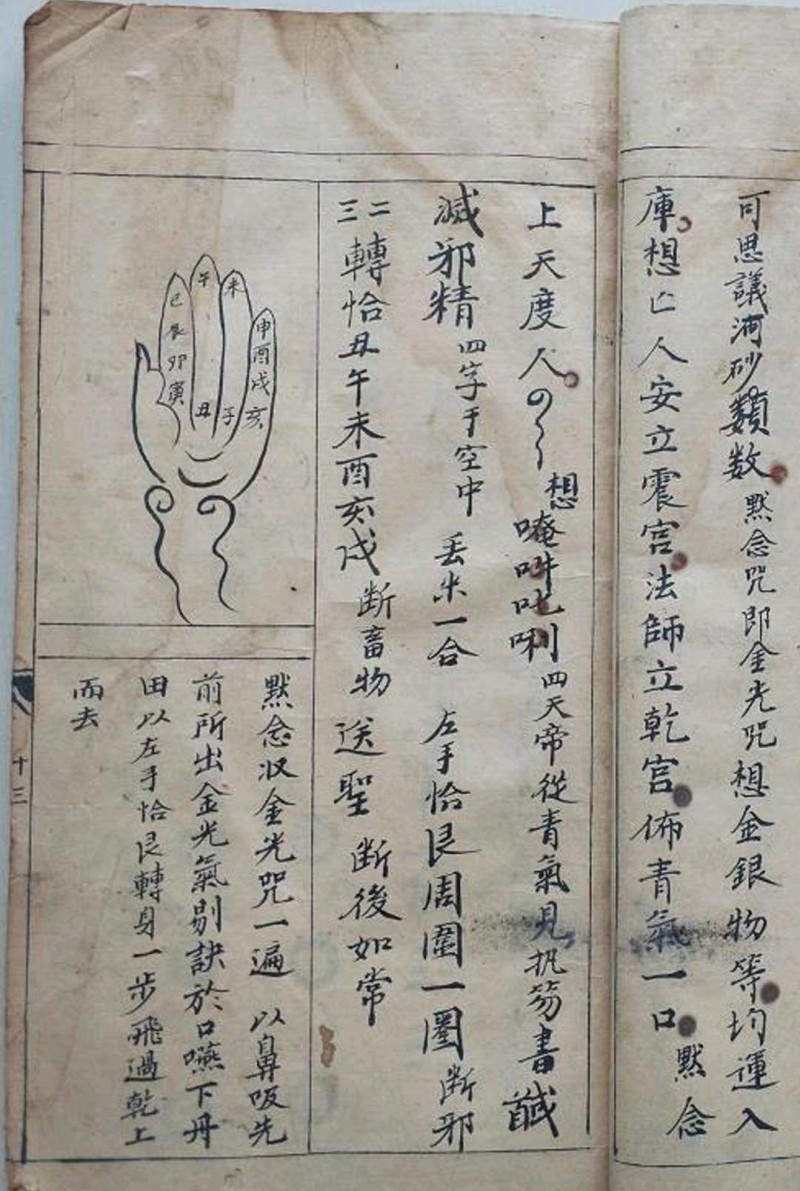 可思議河砂類数 默念咒即金光咒想金銀物等均運入
庫想亡人安立震宮法師立乾宮佈青氣一口 默念
上天度人 想唵吽吒唎四天帝從青氣見执笏書馘
滅邪精四字于空中 丢米一合 左手恰艮周圍一圈断邪
二三轉恰丑午未酉亥戌断畜物送聖 断後如常
午
未
巳
申
辰
酉
卯
戌
寅
亥
丑
子
默念収金光咒一遍 以鼻吸先
前所出金光氣剔訣於口嚥下丹
田以左手恰艮轉身一步飛過乾上
而去
十三